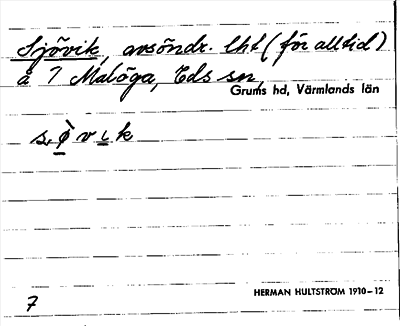 Sjövik, avsöndr. lht (för alltid)
å 7 Malöga, Eds sn,
Grums hd, Värmlands län
s. ø̀ v i k
7
HERMAN HULTSTRÖM 1910–12